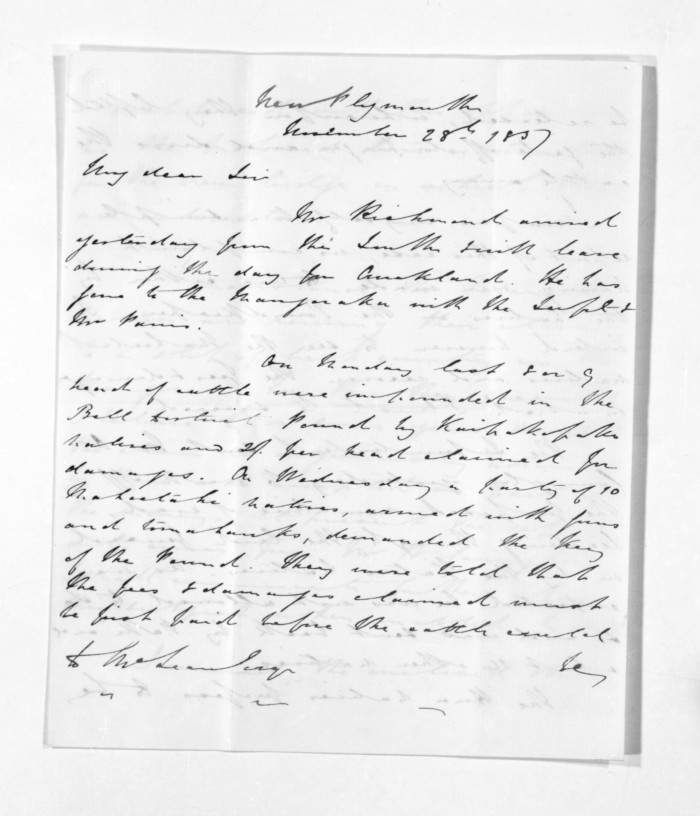 New Plymouth
November 28th 1857
My dear Sir
Mr Richmond arrived
yesterday from the South & will leave
during the day for Auckland. He has
gone to the Mangoraka with the Supt. &
Mr Parris.
On Monday last 8 or 9
head of cattle were impounded in the
Bell District Pound by Kaipakopako
natives and 2/. per head claimed for
damages. On Wednesday a party of 10
Mahoetahi natives, armed with guns
and tomahawks, demanded the key
of the Pound. They were told that
the fees & damages claimed must
be first paid before the cattle could
McLean Esqr be